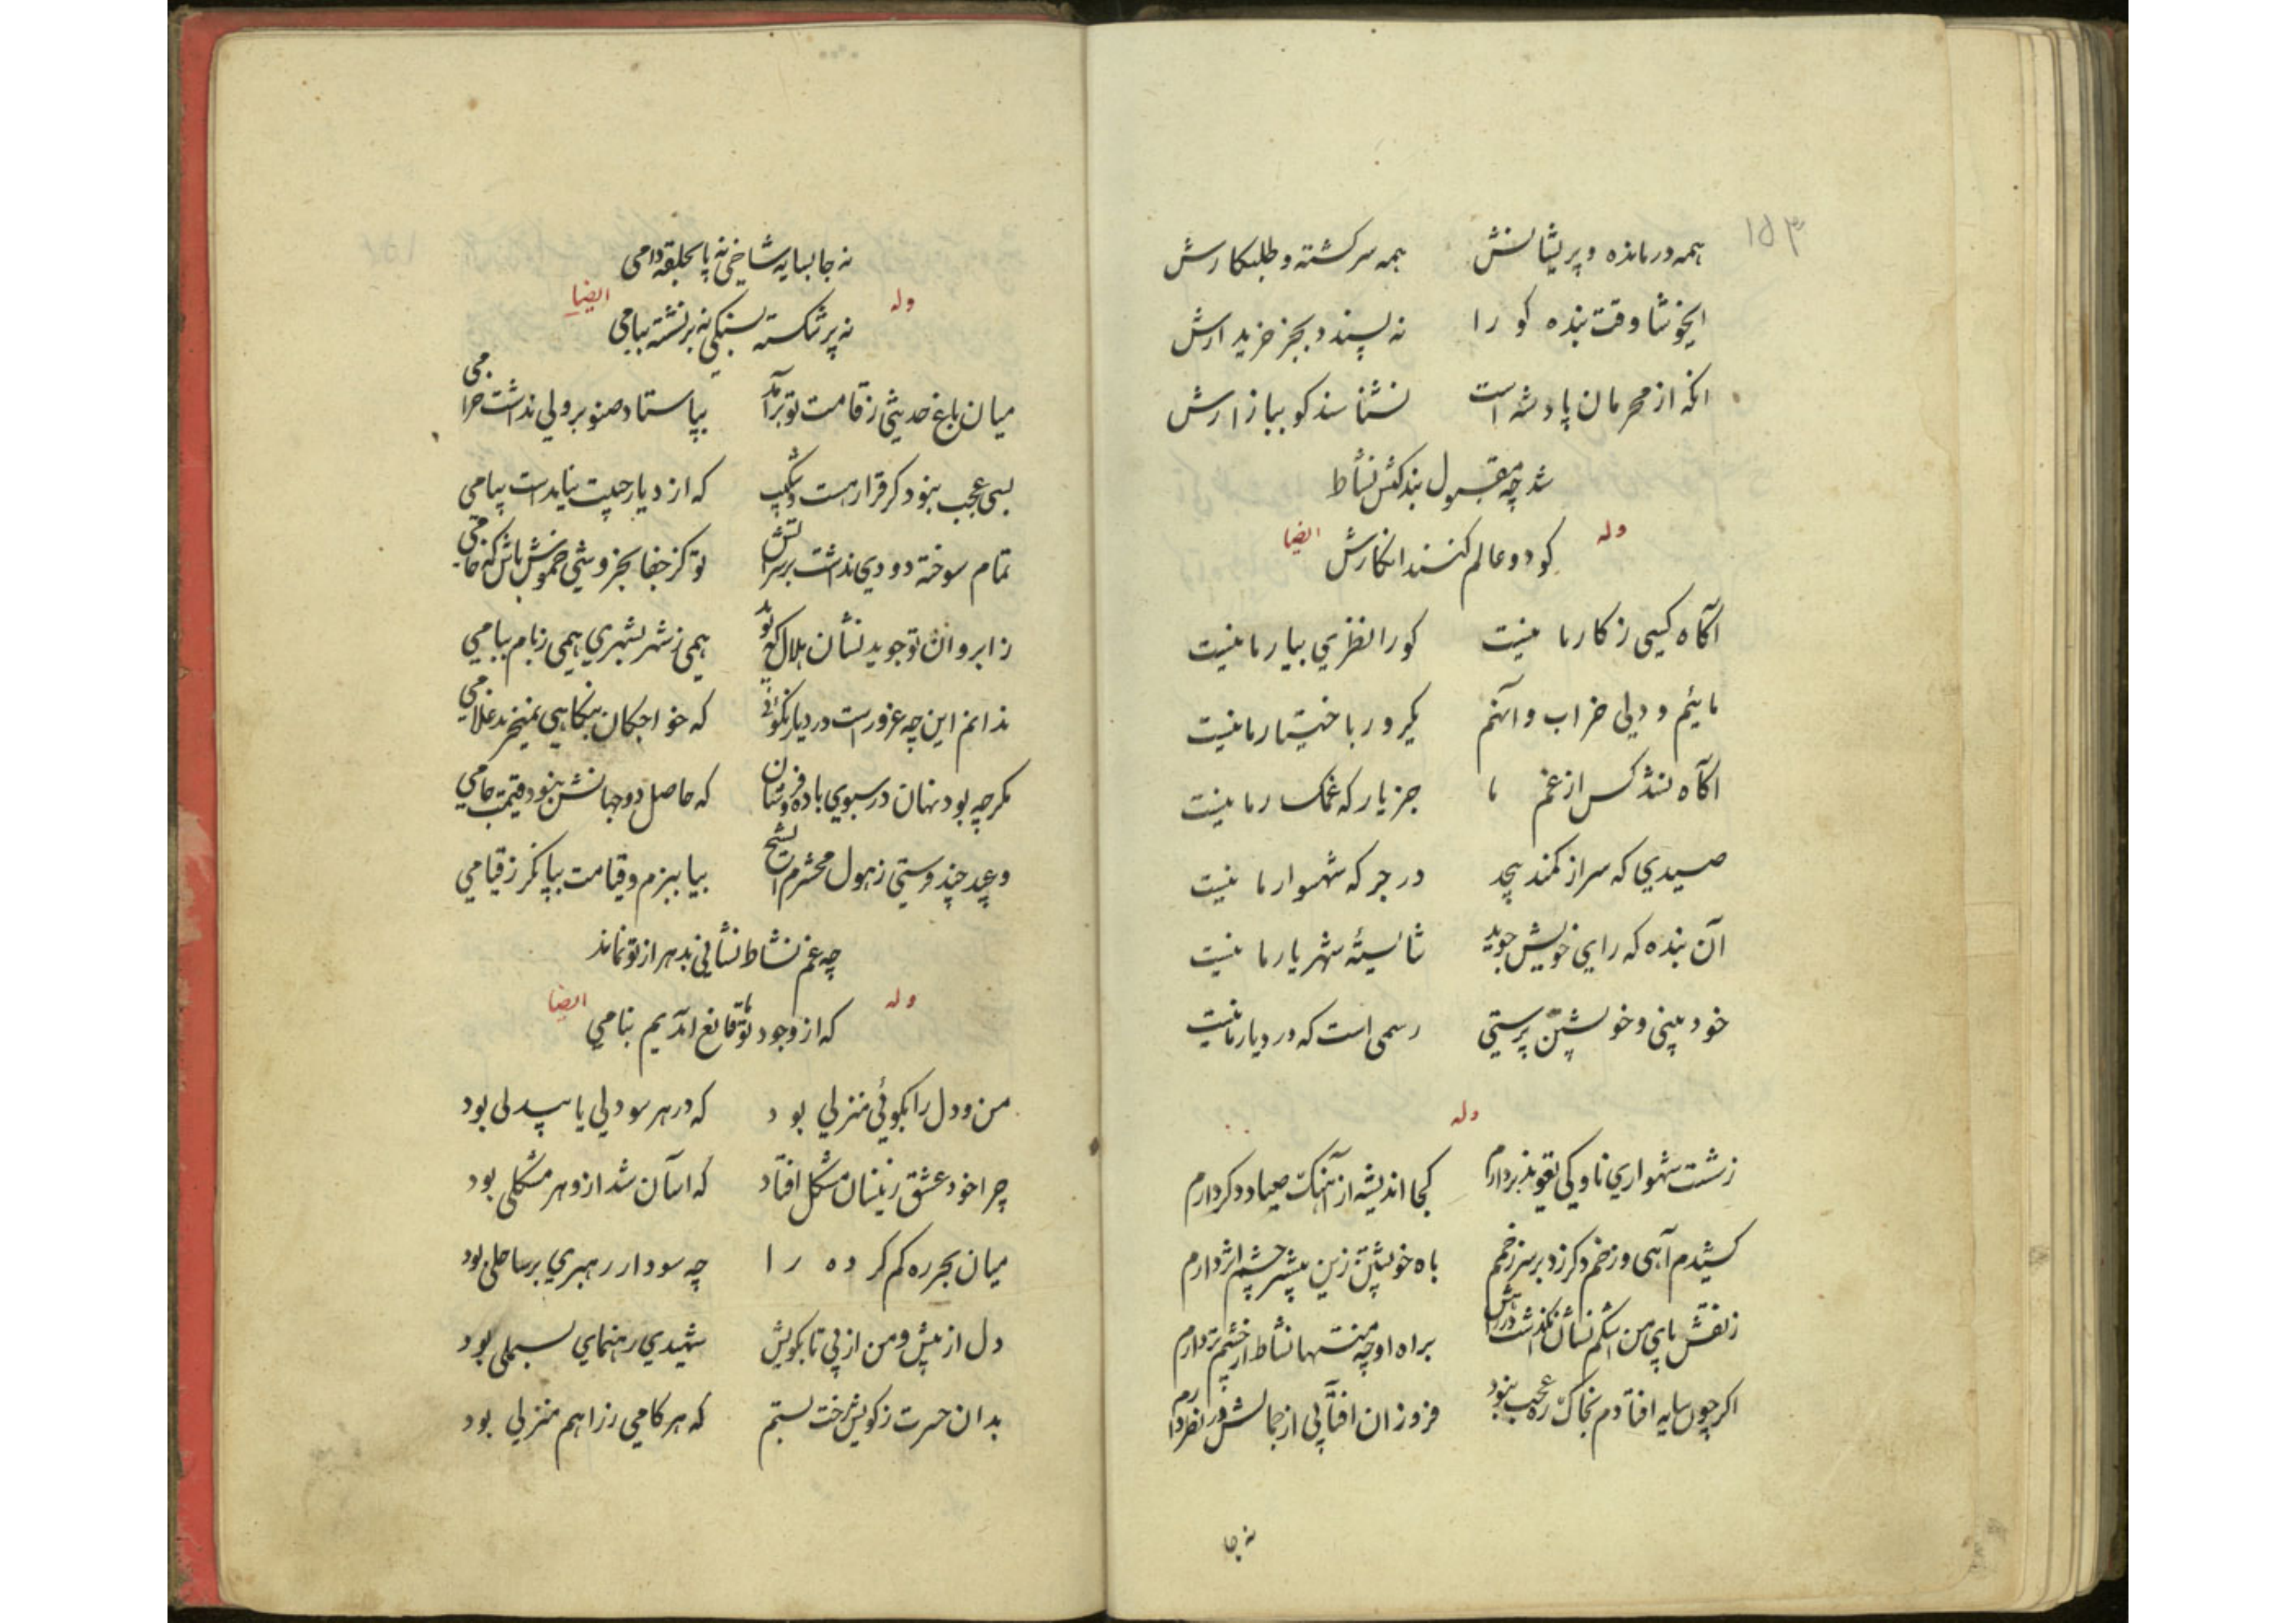 ۱۵۳
همه درمانده و پریشانش همه سرکشته و طلبکارش
ایخوشا وقت بنده کو را نه پسندد بجز خریدارش
انکه از محرمان پادشه است نشناسد کو ببازارش
شد چه مقبول بندکیش نشاط
وله کو دو عالم کنند انکارش ایضا
آکاه کسی ز کار ما نیست کو را نظری بیار ما نیست
مائیم و دلی خراب و آنهم یکرو باختیار ما نیست
آکاه نشد کس از غم ما جز یار که غمکسار ما نیست
صیدی که سر از کمند پیچد در جرکه شهسوار ما نیست
آن بنده که رای خویش جوید شایستهٔ شهریار ما نیست
خود بینی و خویشتن پرستی رسمی است که در دیار ما نیست
وله
ز شست شهسواری ناوکی تعویذ بر دارم کجا اندیشه از آهنک صیاد دکر دارم
کشیدم آهی و زخم دکر زد بر سر زخمم باه خویشتن زین بیشتر چشم اثر دارم
ز نقش پای من اشکم نشان نکذاشت در راهش براه او چه منتها نشاط از چشم تر دارم
اکر چون سایه افتادم بخاک ره عجب نبود فروزان افتابی از جمالش در نظر دارم
نه جا
نه جا بسایه شاخی نه پا بحلقه دامی
وله نه پر شکسته بسنکی نه بر نشسته ببامی ایضا
میان باغ حدیثی ز قامت تو برآمد بپا ستاد صنوبر ولی نداشت خرامی
بسی عجب نبود کر قرار هست و شکیب که از دیار حبیبت نیامدست پیامی
تمام سوخته دودی نداشت بر سر آتش تو کز جفا بخروشی خموش باش که خامی
ز ابروان تو جوید نشان هلال که نو بد همی ز شهر بشهری همی ز بام ببامی
ندانم این چه غرورست در دیار نکوئی که خواجکان بنکاهی نمیخرند غلامی
مکر چه بود نهان در سبوی باده فروشان که حاصل دو جهانش نبود قیمت جامی
وعید چند فرستی ز هول محشرم ایشیخ بیا ببزم و قیامت بپا نکر ز قیامی
چه غم نشاط نشانی بدهر از تو نماند
وله که از وجود تو ما قانع آمدیم بنامی ایضا
من و دل را بکوئی منزلی بود که در هر سو دلی یا بیدلی بود
چرا خود عشق زینسان مشکل افتاد که اسان شد ازو هر مشکلی بود
میان بحر ره کم کرده را چه سود ار رهبری بر ساحلی بود
دل از پیش و من از پی تا بکویش شهیدی رهنمای بسملی بود
بدان حسرت ز کویش رخت بستم که هر کامی ز راهم منزلی بود